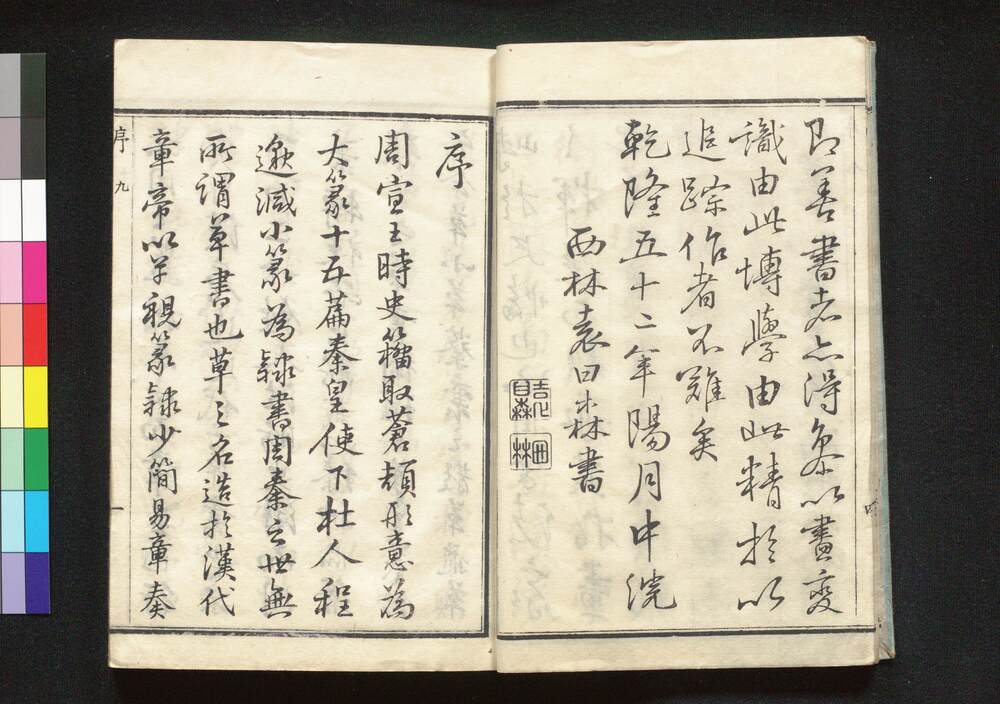 即善書者亦得參以盡變
識由此博學由此精於以
追踪作者不難矣
乾隆五十二年陽月中浣
西林袁日森書
四
序
周宣王時史籀取蒼頡形意為
大篆十五篇秦皇使下杜人程
邈減小篆為隸書周秦之世無
所謂草書也草之名造於漢代
章帝以字視篆隸少簡易章奏
序 九
一